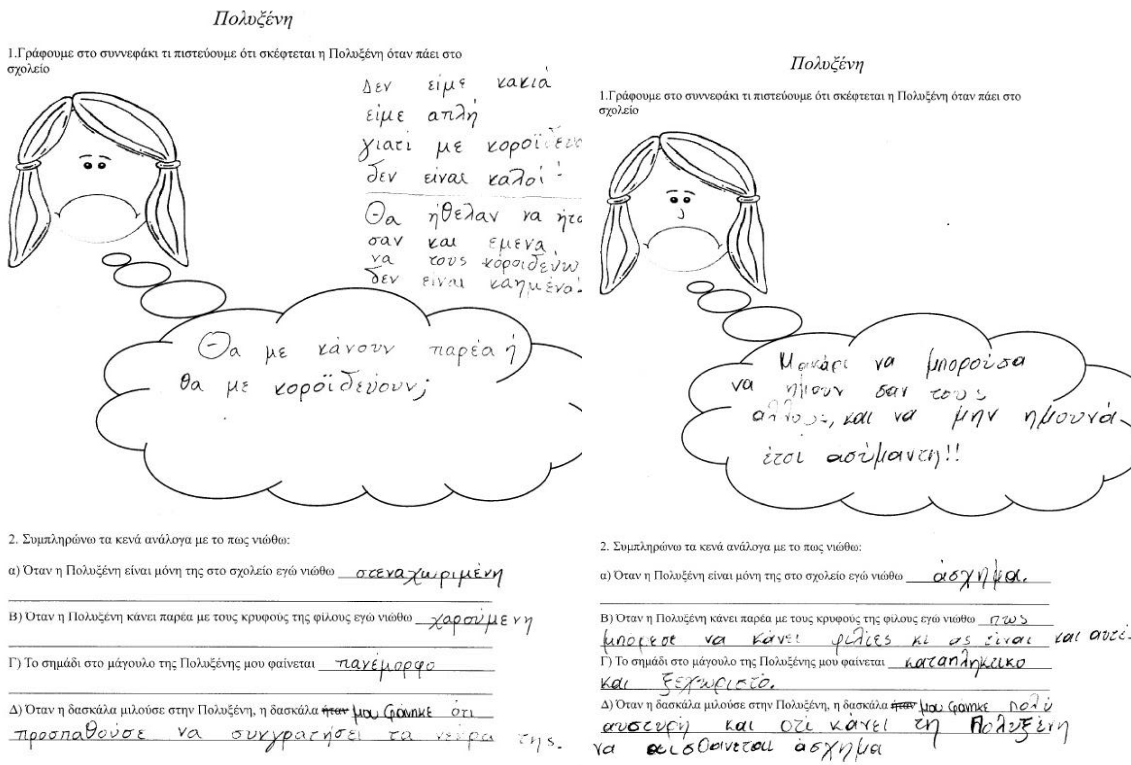 Πολυξένη
1.Γράφουμε στο συννεφάκι τι πιστεύουμε ότι σκέφτεται η Πολυξένη όταν πάει στο
σχολείο
Δεν είμε κακιά
είμε απλή
γιατί με κοροϊδεύο
δεν είναι καλοί
Θα ήθελαν να ήτα
σαν και εμενα
να τους κοροιδεύω
δεν ειναι καημένα.
Θα με κάνουν παρέα ή
θα με κοροϊδεύουν;
2. Συμπληρώνω τα κενά ανάλογα με το πως νιώθω:
α) Όταν η Πολυξένη είναι μόνη της στο σχολείο εγώ νιώθω στεναχωριμένη
Β) Όταν η Πολυξένη κάνει παρέα με τους κρυφούς της φίλους εγώ νιώθω χαρούμενη
Γ) Το σημάδι στο μάγουλο της Πολυξένης μου φαίνεται πανέμορφο
Δ) Όταν η δασκάλα μιλούσε στην Πολυξένη, η δασκάλα ήταν μου φάνηκε ότι
προσπαθούσε να συγκρατήσει τα νεύρα της.
Πολυξένη
1.Γράφουμε στο συννεφάκι τι πιστεύουμε ότι σκέφτεται η Πολυξένη όταν πάει στο
σχολείο
Μακάρι να μπορούσα
να ήμουν σαν τους
αλλους, και να μην ημουνά
έτσι ασύμαντη!!
2. Συμπληρώνω τα κενά ανάλογα με το πως νιώθω:
α) Όταν η Πολυξένη είναι μόνη της στο σχολείο εγώ νιώθω άσχημα.
Β) Όταν η Πολυξένη κάνει παρέα με τους κρυφούς της φίλους εγώ νιώθω πως
μπόρεσε να κάνει φιλίες κι ας είναι και αυτέ.
Γ) Το σημάδι στο μάγουλο της Πολυξένης μου φαίνεται καταπληκτικο
και ξεχωριστό.
Δ) Όταν η δασκάλα μιλούσε στην Πολυξένη, η δασκάλα ήταν μου φάνηκε πολύ
αυστυρή και οτι κάνει τη Πολυξένη
να αισθανεται άσχημα